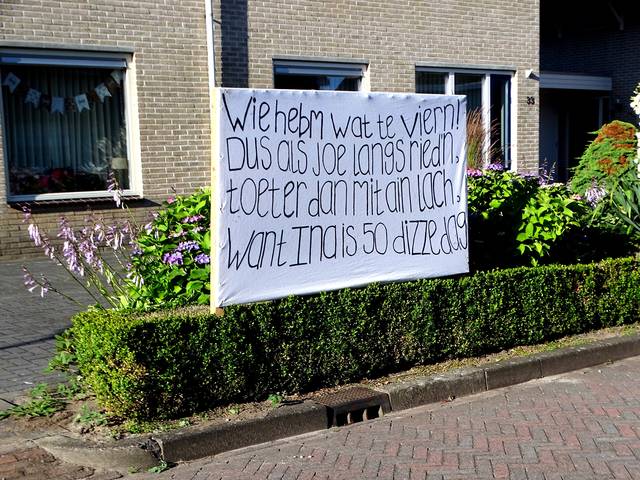 Wie hebm wat te viern!
Dus als joe langs riedn,
toeter dan mit ain lach,
want Ina is 50 dizze dag
33